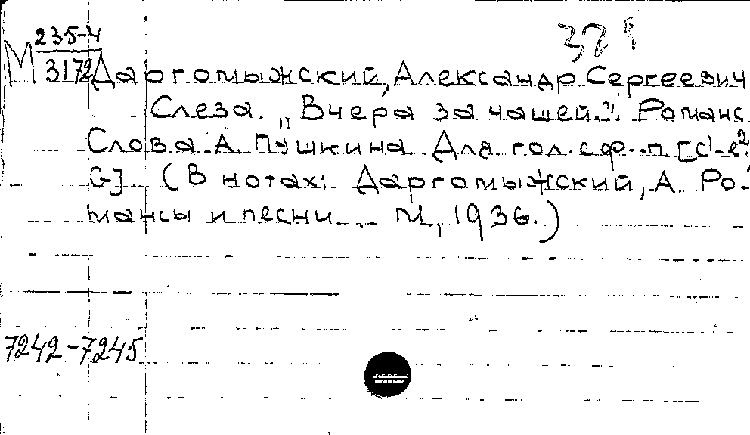 М 235-4
3172
Даргомыжский, Александр Сергеевич
Слеза. „Вчера за чашей..." Романс
Слова А. Пушкина Для гол. с ф.-п. [c¹-e²;
G] (В нотах: Даргомыжский, А. Ро-
мансы и песни... М., 1936.)
7242-7245